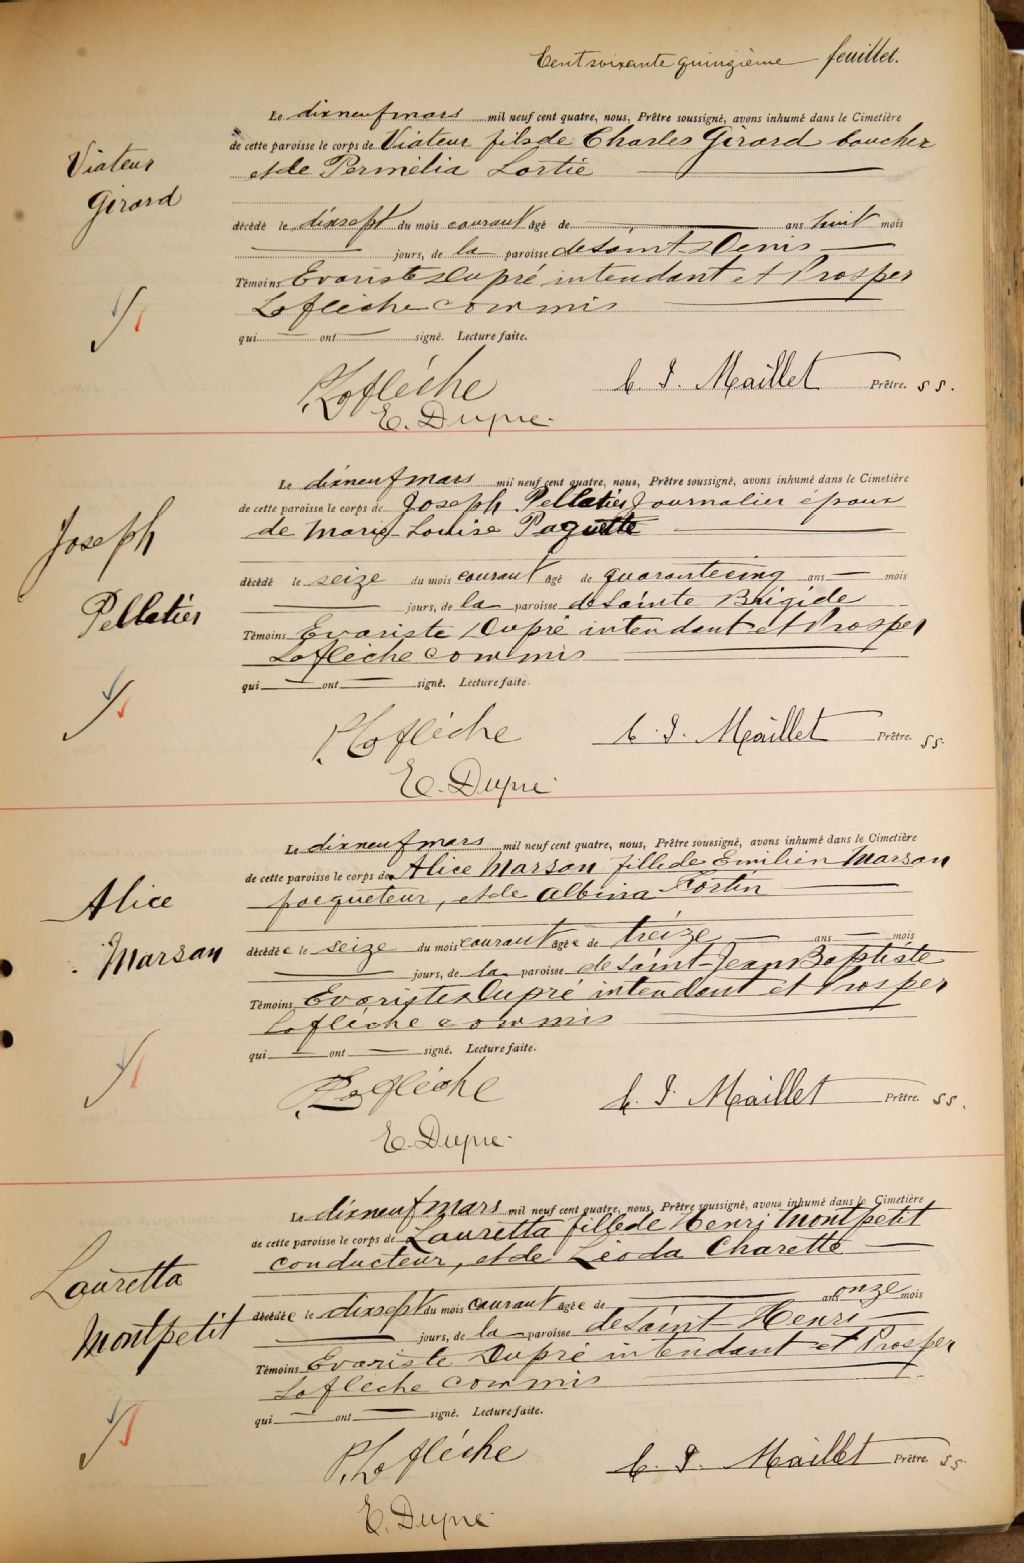 Cent soixante quinzième feuillet.
Viateur
Girard
Le dixneuf mars mil neuf cent quatre, nous, Prêtre soussigné, avons inhumé dans le Cimetière
de cette paroisse le corps de Viateur fils de Charles Girard boucher
et de Permélia Lortie
décédé le dixsept du mois courant âgé de ans huit mois
jours, de la paroisse de Saint Denis
Témoins Evariste Dupré intendant et Prosper
Laflèche commis
qui ont signé. Lecture faite.
P. Laflèche
C. J. Maillet Prêtre. SS.
E. Dupré
Joseph
Pelletier
Le dixneuf mars mil neuf cent quatre, nous, Prêtre soussigné, avons inhumé dans le Cimetière
de cette paroisse le corps de Joseph Pelletier journalier époux
de Marie Louise Paquette
décédé le seize du mois courant âgé de quarantecinq ans mois
jours, de la paroisse de Sainte Brigide
Témoins Evariste Dupré intendant et Prosper
Laflèche commis
qui ont signé. Lecture faite.
P. Laflèche
C. J. Maillet Prêtre. SS.
E. Dupré
Alice
Marsan
Le dixneuf mars mil neuf cent quatre, nous, Prêtre soussigné, avons inhumé dans le Cimetière
de cette paroisse le corps de Alice Marsan fille de Emilien Marsan
paqueteur, et de Albina Fortin
décédée le seize du mois courant âgée de treize ans mois
jours, de la paroisse de Saint-Jean Baptiste
Témoins Evariste Dupré intendant et Prosper
Laflèche commis
qui ont signé. Lecture faite.
P. Laflèche
C. J. Maillet Prêtre. SS.
E. Dupré
Lauretta
Montpetit
Le dixneuf mars mil neuf cent quatre, nous, Prêtre soussigné, avons inhumé dans le Cimetière
de cette paroisse le corps de Lauretta fille de Henri Montpetit
conducteur, et de Léoda Charette
décédée le dixsept du mois courant âgée de ans onze mois
jours, de la paroisse de Saint-Henri
Témoins Evariste Dupré intendant et Prosper
Laflèche commis
qui ont signé. Lecture faite.
P. Laflèche
C. J. Maillet Prêtre. SS.
E. Dupré